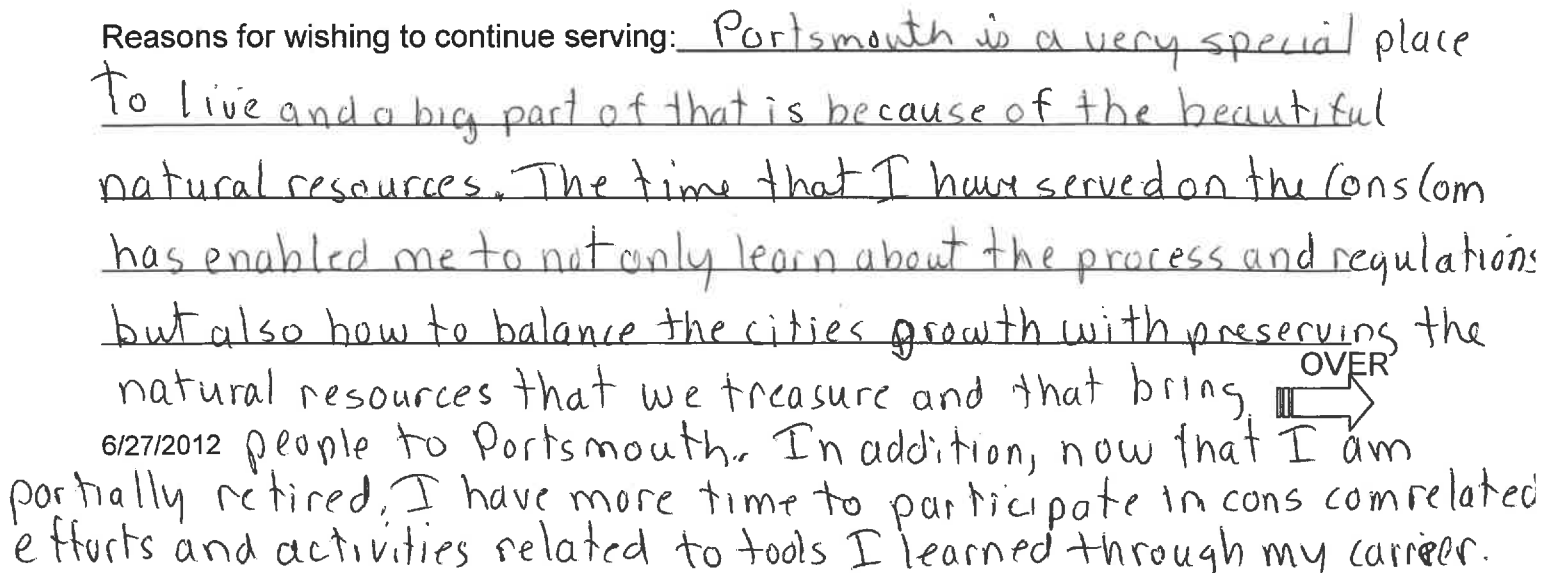 Reasons for wishing to continue serving: Portsmouth is a very special place
To live and a big part of that is because of the beautiful
natural resources. The time that I have served on the Cons Com
has enabled me to not only learn about the process and regulations
but also how to balance the cities growth with preserving the
OVER
natural resources that we treasure and that bring
6/27/2012 people to Portsmouth. In addition, now that I am
partially retired, I have more time to participate in cons com related
efforts and activities related to tools I learned through my carrieer.